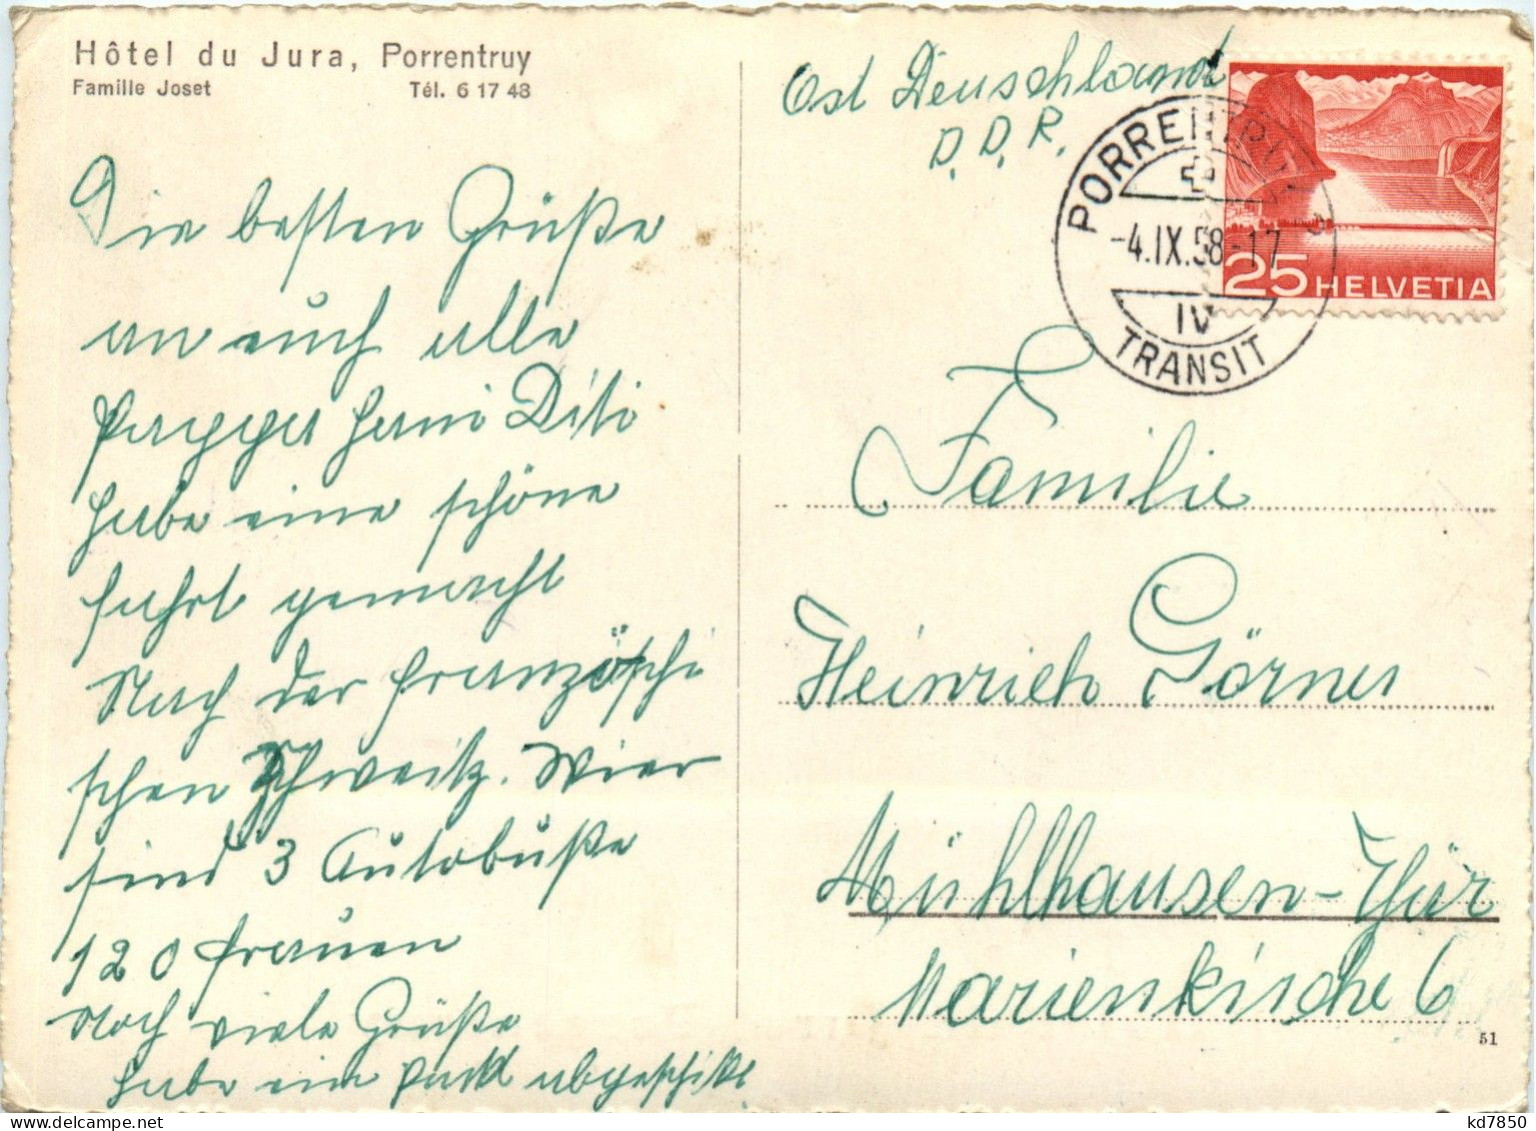 Hôtel du Jura, Porrentruy
Famille Joset Tél. 6 17 48
Die besten Grüße
an euch alle
habe eine schöne
fahrt gemacht
Nach der französchi
schen Schweitz. Wier
sind 3 Autobuße
120 frauen
Noch viele Grüße
habe ein pack abgeschikt
Ost Deuschland
D.D.R.
PORRENTRUY
-4.IX.58-17
IV
TRANSIT
25 HELVETIA
Familie
Heinrich Görner
Mühlhausen-Thür
Marienkirche 6
51
kd7850